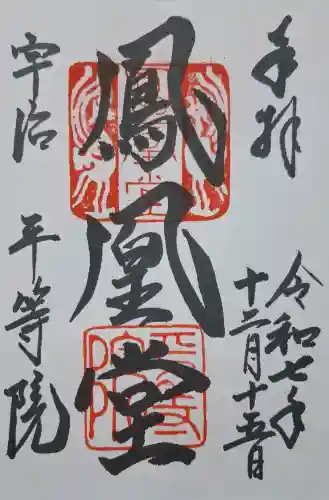 奉拝
令和七年
十二月十五日
鳳凰堂
宇治
平等院